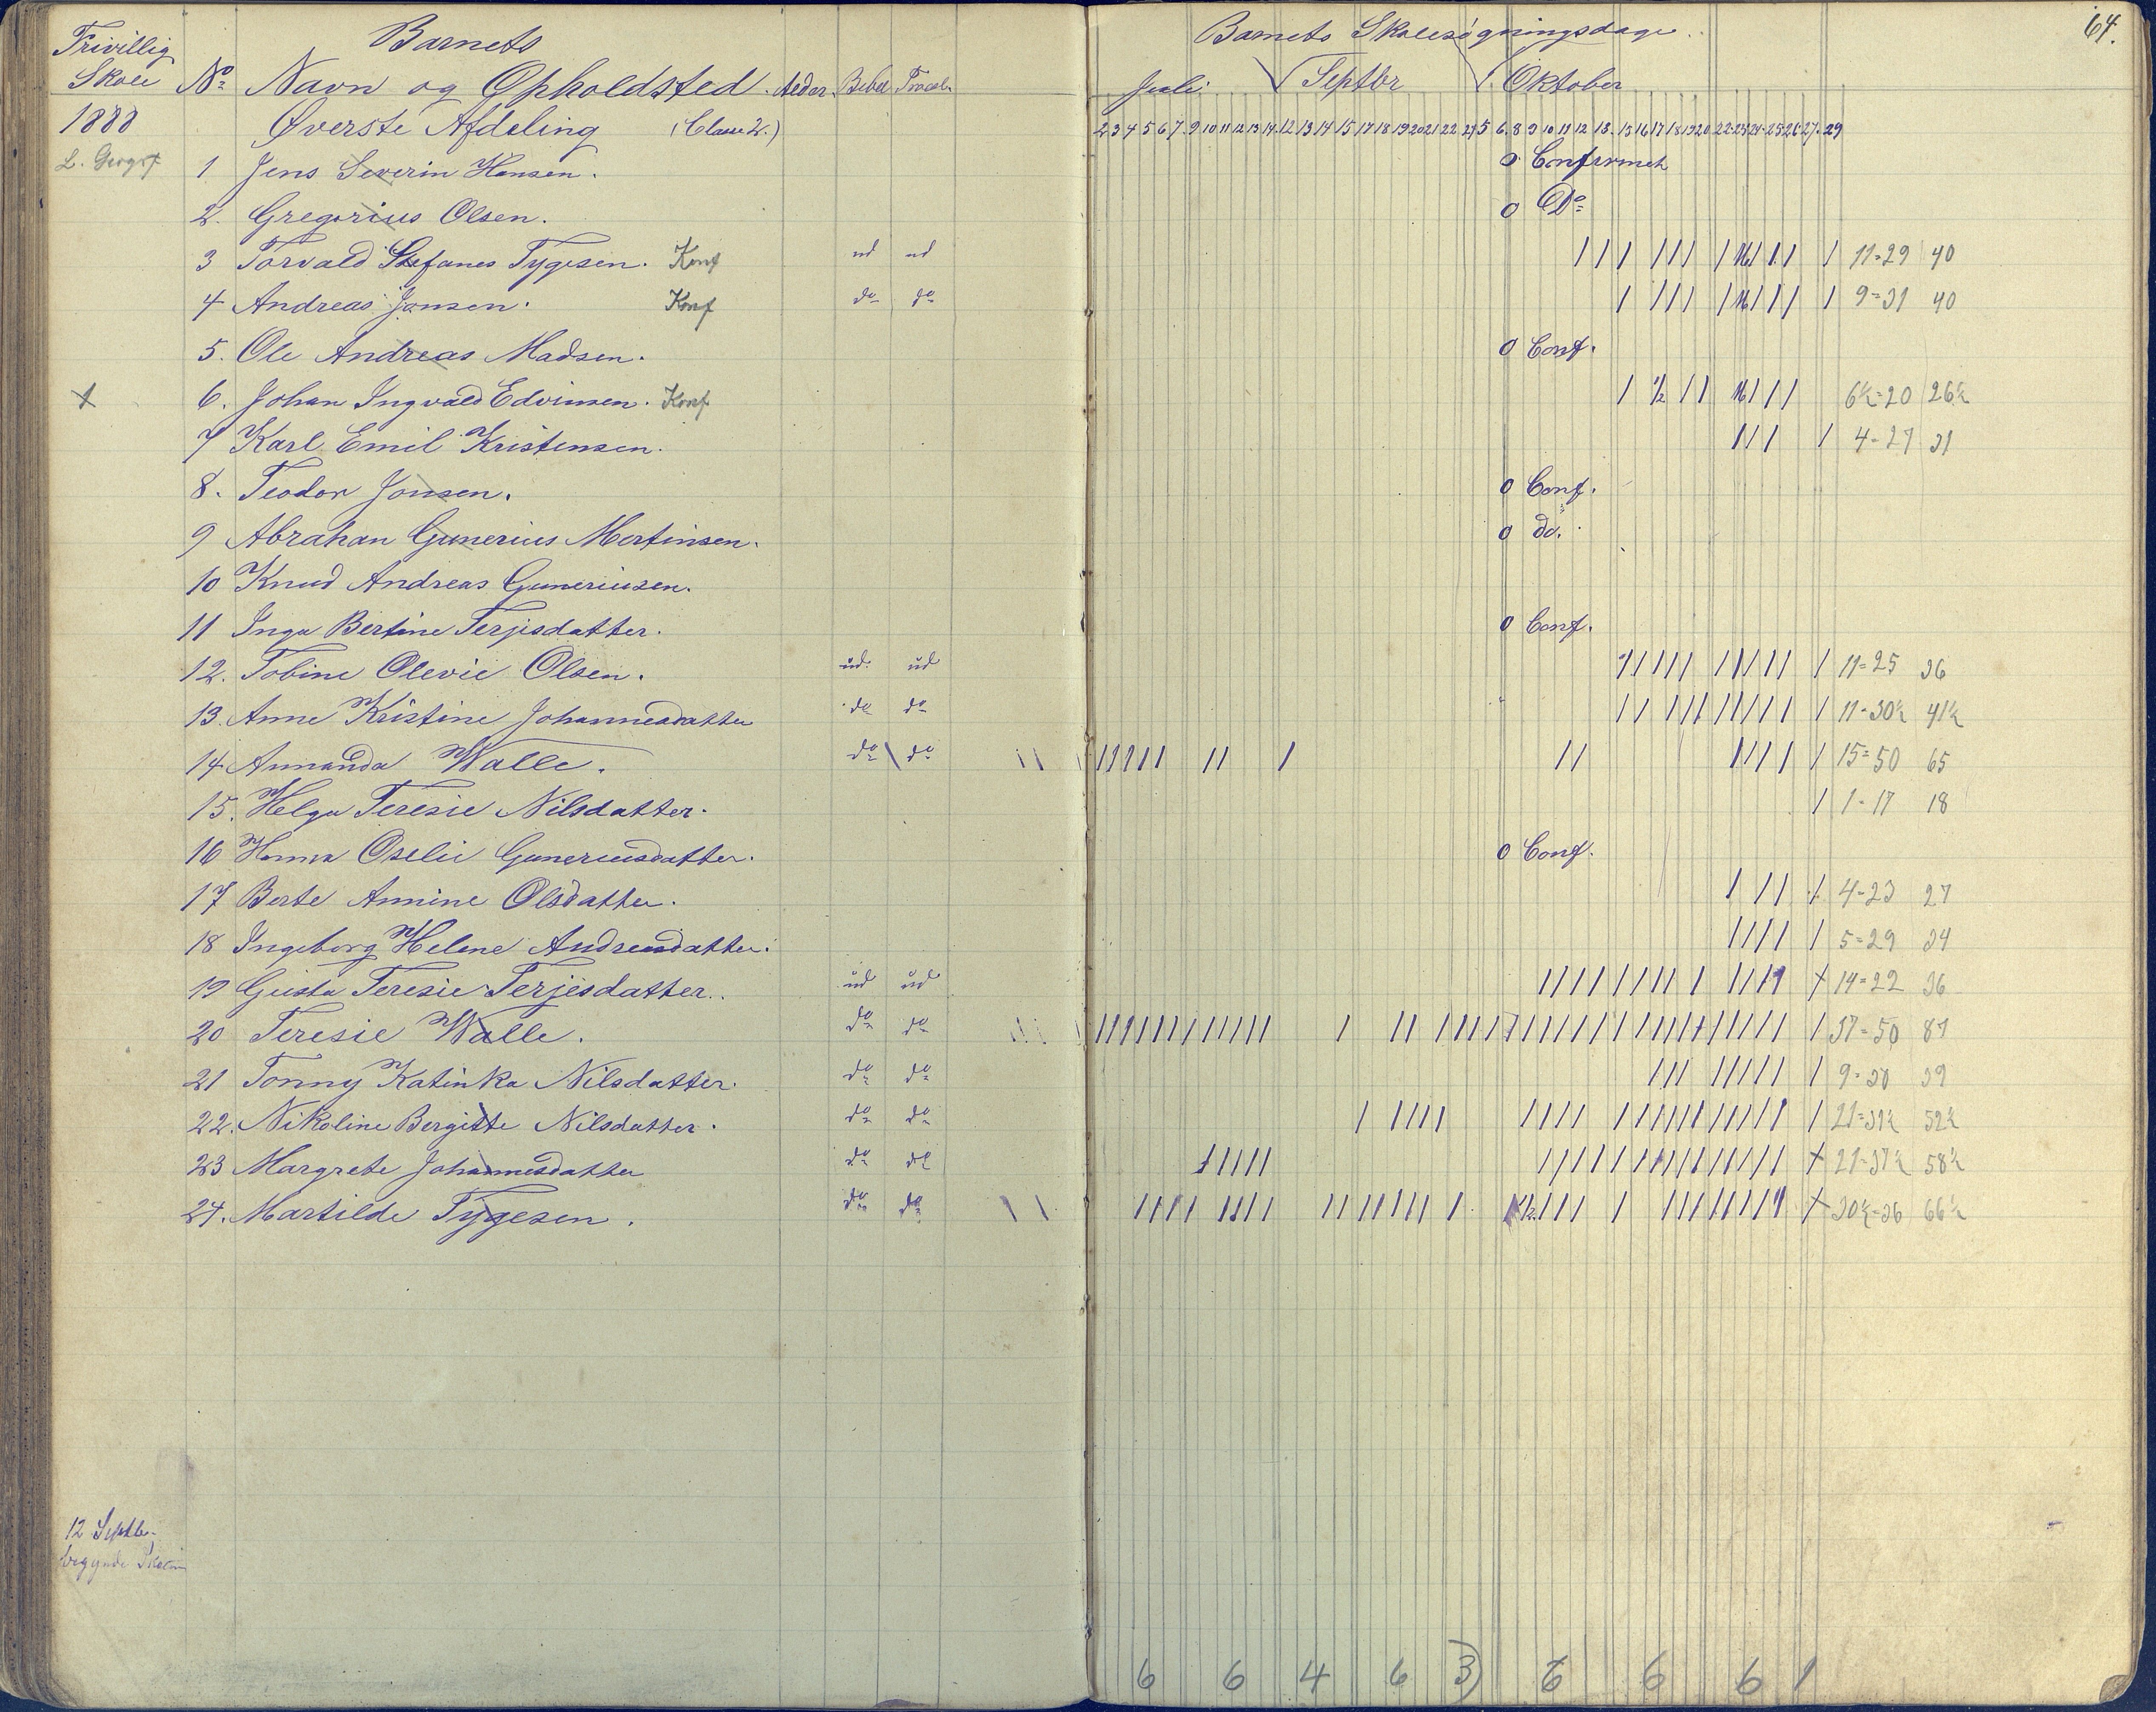 Frivillig Skole
Barnets
No Navn og Opholdsted. Alder. Bibel
1888 Øverste Afdeling (Classe 2.)
1 Jens Severin Hansen.
2. Gregorius Olsen.
3 Torvald Stefanes Tygesen. Konf ud ud
4 Andreas Jansen. Konf do do
5. Ole Andreas Madsen.
6. Johan Ingvald Edvinsen. Konf
7 Karl Emil Kristensen.
8. Teodor Jonsen.
9 Abrahan Gunerius Mortinsen.
10 Knud Andreas Guneriusen.
11 Inga Bertine Terjesdatter.
12. Tobine Olevie Olsen. ud. ud
13. Anne Kristine Johannesdatter do do
14 Annanda Walle. do do
15. Helga Teresie Nilsdatter.
16 Hanna Oselie Guneriusdatter.
17 Berte Annine Olsdatter.
18 Ingeborg Helene Andreasdatter.
19 Gusta Teresie Terjesdatter. ud ud
20 Teresie Walle. do do
21 Tonny Katinka Nilsdatter. do do
22. Nikoline Bergitte Nilsdatter. do do
23 Margrete Johannesdatter do do
24. Martilde Tygesen. do do
12 Septbr
begynde Skolen
64.
Barnets Skolesøgningsdage.
Juli Septbr Oktober
2 3 4 5 6 7 9 10 11 12 13 14 12 13 14 15 17 18 19 20 21 22 24 5 6 8 9 10 11 12 13 15 16 17 18 19 20 22 23 24 25 26 27 29
0 Confirmet
0 Do
11=29 40
9=31 40
0 Conf.
1/2 6½=20 26½
4=27 31
0 Conf.
0 do.
0 Conf.
11=25 36
11=30½ 41½
15=50 65
1=17 18
0 Conf.
4=23 27
5=29 34
14=22 36
37=50 87
9=30 39
21=31½ 52½
21=37½ 58½
30½=36 66½
6 6 4 6 3) 6 6 6 1